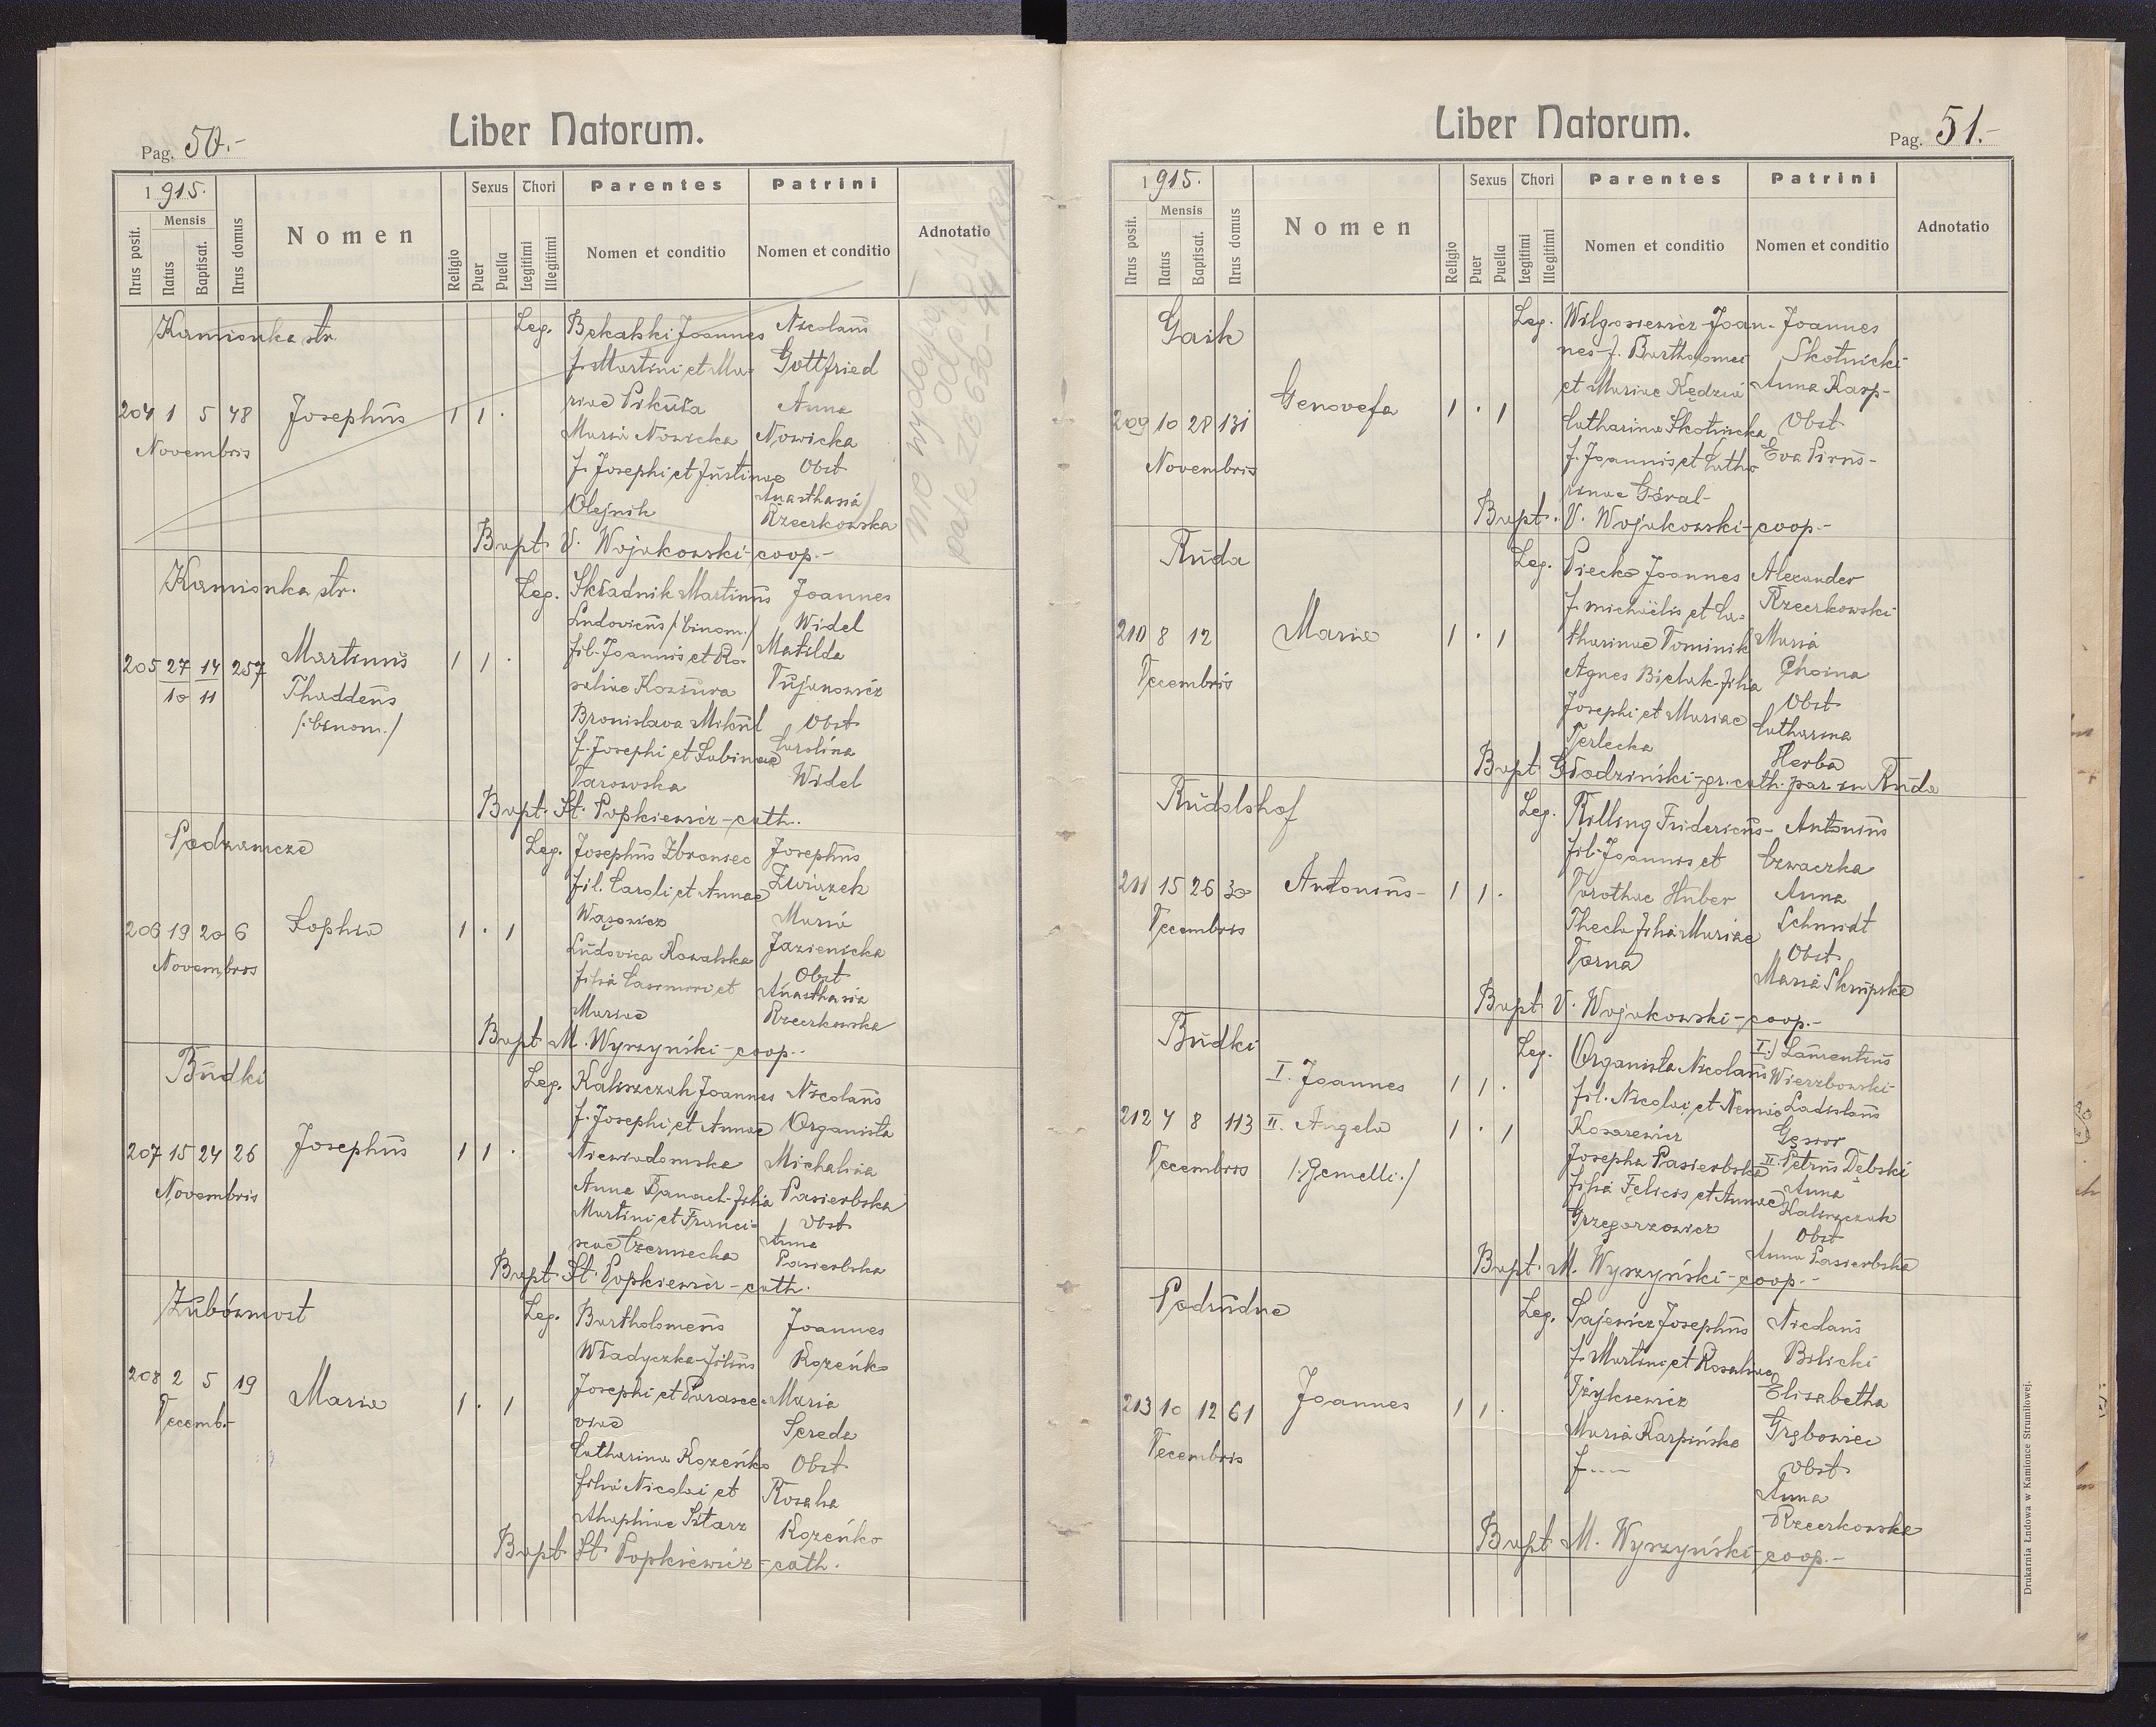 Pag. 50.-
Liber Natorum.
1915.
Nrus posit.
Mensis
Natus
Baptisat.
Nrus domus
Nomen
Religio
Sexus
Puer
Puella
Thori
Legitimi
Illegitimi
Parentes
Nomen et conditio
Patrini
Nomen et conditio
Adnotatio
Kamionka str.
204 1 5 48
Novembris
Josephus
1 1 .
Leg.
Bekalski Joannes
f. Martini et Ma-
riae Pikuła
Maria Nowicka
f. Josephi et Justinae
Olejnik
Nicolaus
Gottfried
Anna
Nowicka
Obst
Anasthasia
Rzeczkowska
Bapt. V. Wojakowski-coop.-
nie wydawać
Kamionka str.
205 27 14 257
10 11
Martinus
Thaddeus
/:binom./
1 1 .
Leg.
Składnik Martinus
Ludovicus /:binom./
fil. Joannis et Ro-
saliae Kowsura
Bronislava Mikul
f. Josephi et Sabinae
Tarowska
Joannes
Widel
Matilda
Dujanowicz
Obst
Carolina
Widel
Bapt. St. Popkiewicz-cath.
Podzamcze
206 19 20 6
Novembris
Sophia
1 . 1
Leg.
Josephus Zbroniec
fil. Caroli et Annae
Wąsowicz
Ludovica Kowalska
filia Casimiri et
Mariae
Josephus
Związek
Maria
Jazienicka
Obst
Anasthasia
Rzeczkowska
Bapt. M. Wyrzyński-coop.-
Budki
207 15 24 26
Novembris
Josephus
1 1 .
Leg.
Kaliszczak Joannes
f. Josephi et Annae
Niewiadomska
Anna Banach-filia
Martini et Franci-
scae Czerniecka
Nicolaus
Organista
Michalina
Pasierbska
Obst
Anna
Pasierbska
Bapt. St. Popkiewicz-cath.
Zubówmost
208 2 5 19
Decemb.-
Maria
1 . 1
Leg.
Bartholomeus
Władyczka-filius
Josephi et Parasce-
viae
Catharina Kozeńko
filia Nicolai et
Ahaphiae Sztarz
Joannes
Kozeńko
Maria
Sereda
Obst
Rosalia
Kozeńko
Bapt. St. Popkiewicz-cath.
Liber Natorum.
Pag. 51.-
1915.
Nrus posit.
Mensis
Natus
Baptisat.
Nrus domus
Nomen
Religio
Sexus
Puer
Puella
Thori
Legitimi
Illegitimi
Parentes
Nomen et conditio
Patrini
Nomen et conditio
Adnotatio
Gaik
209 10 28 131
Novembris
Genovefa
1 . 1
Leg.
Wilgosiewicz Joan-
nes-f. Bartholomei
et Mariae Kędzia
Catharina Skotnicka
f. Joannis et Catha
rinae Góral-
Joannes
Skotnicki
Anna Karp-
Obst
Eva Pirus-
Bapt. V. Wojakowski-coop.-
Ruda
210 8 12
Decembris
Maria
1 . 1
Leg.
Piecko Joannes
f. Michaëlis et Ca-
tharinae Dominik
Agnes Bielak-filia
Josephi et Mariae
Terlecka
Alexander
Rzeczkowski
Maria
Choina
Obst
Catharina
Herba
Bapt. Głodziński-gr. cath. par. in Ruda
Rudolshof
211 15 26 30
Decembris
Antonius-
1 1 .
Leg.
Rilling Fridericus-
fil. Joannis et
Dorothae Huber
Thecla filia Mariae
Dorna
Antonius
Czwaczka
Anna
Schmidt
Obst
Maria Skrupska
Bapt. V. Wojakowski-coop.-
Budki
212 4 8 113
Decembris
I. Joannes
II. Angela
/:Gemelli:/
1 1 .
1 . 1
Leg.
Organista Nicolaus
fil. Nicolai et
Kosarewicz
Josepha Pasierbska
filia Felicis et Annae
Grzegorzowicz
I.) Laurentius
Wierzbowski
Ladislaus
Gąsior
II. Petrus Dębski
Anna
Kaliszczak
Obst
Anna Pasierbska
Bapt. M. Wyrzyński-coop.-
Podrudne
213 10 12 61
Decembris
Joannes
1 1 .
Leg.
Sajewicz Josephus
f. Martini et Rosaliae
Maria Karpińska
f----
Nicolaus
Bilicki
Elisabetha
Grębowiec
Obst
Anna
Rzeczkowska
Bapt. M. Wyrzyński-coop.-
Drukarnia Ludowa w Kamionce Strumiłowej.